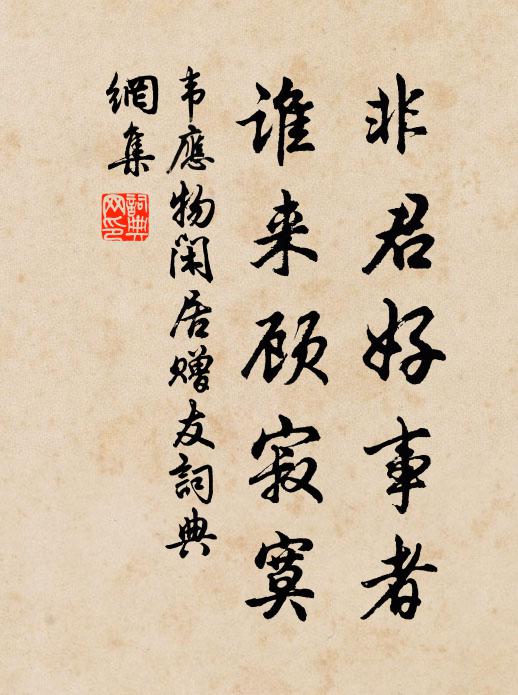 非君好事者
谁来顾寂寞
韦應物闲居赠友詞典
網集
詞典网印